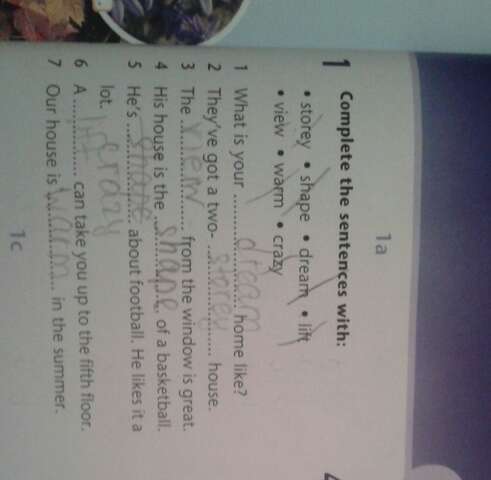 1a
1 Complete the sentences with:
• storey • shape • dream • lift
• view • warm • crazy
1 What is your dream home like?
2 They've got a two- storey house.
3 The view from the window is great.
4 His house is the shape of a basketball.
5 He's shape about football. He likes it a
lot. crazy
6 A lift can take you up to the fifth floor.
7 Our house is warm in the summer.
1c